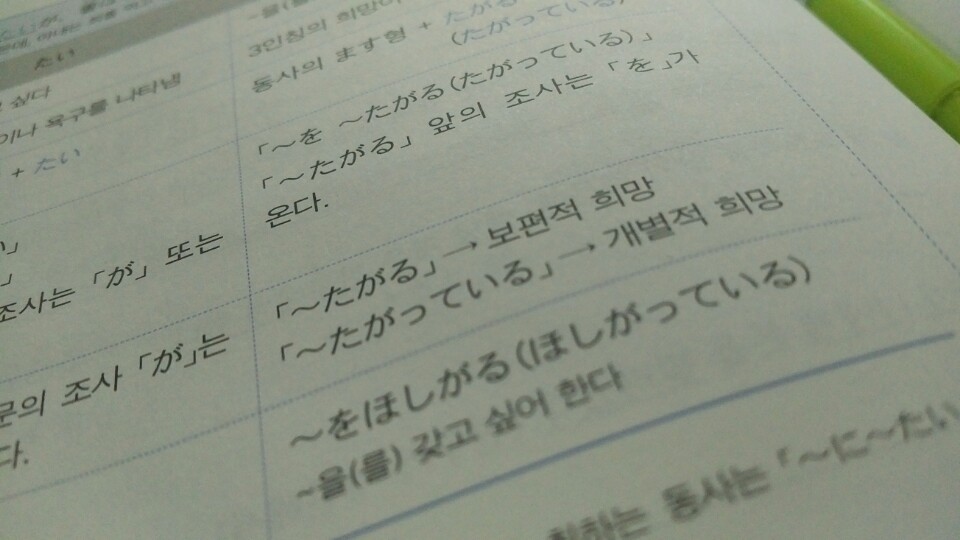 たい
싶다
이나 욕구를 나타냄
+ たい
」
조사는 「が」 또는
문의 조사 「が」는
다.
3인칭의 희망이
동사의 ます형 + たがる
(たがっている)
「~を ~たがる(たがっている)」
「~たがる」 앞의 조사는 「を」가
온다.
「~たがる」→ 보편적 희망
「~たがっている」→ 개별적 희망
~をほしがる(ほしがっている)
~을(를) 갖고 싶어 한다
동사는 「~に~たい